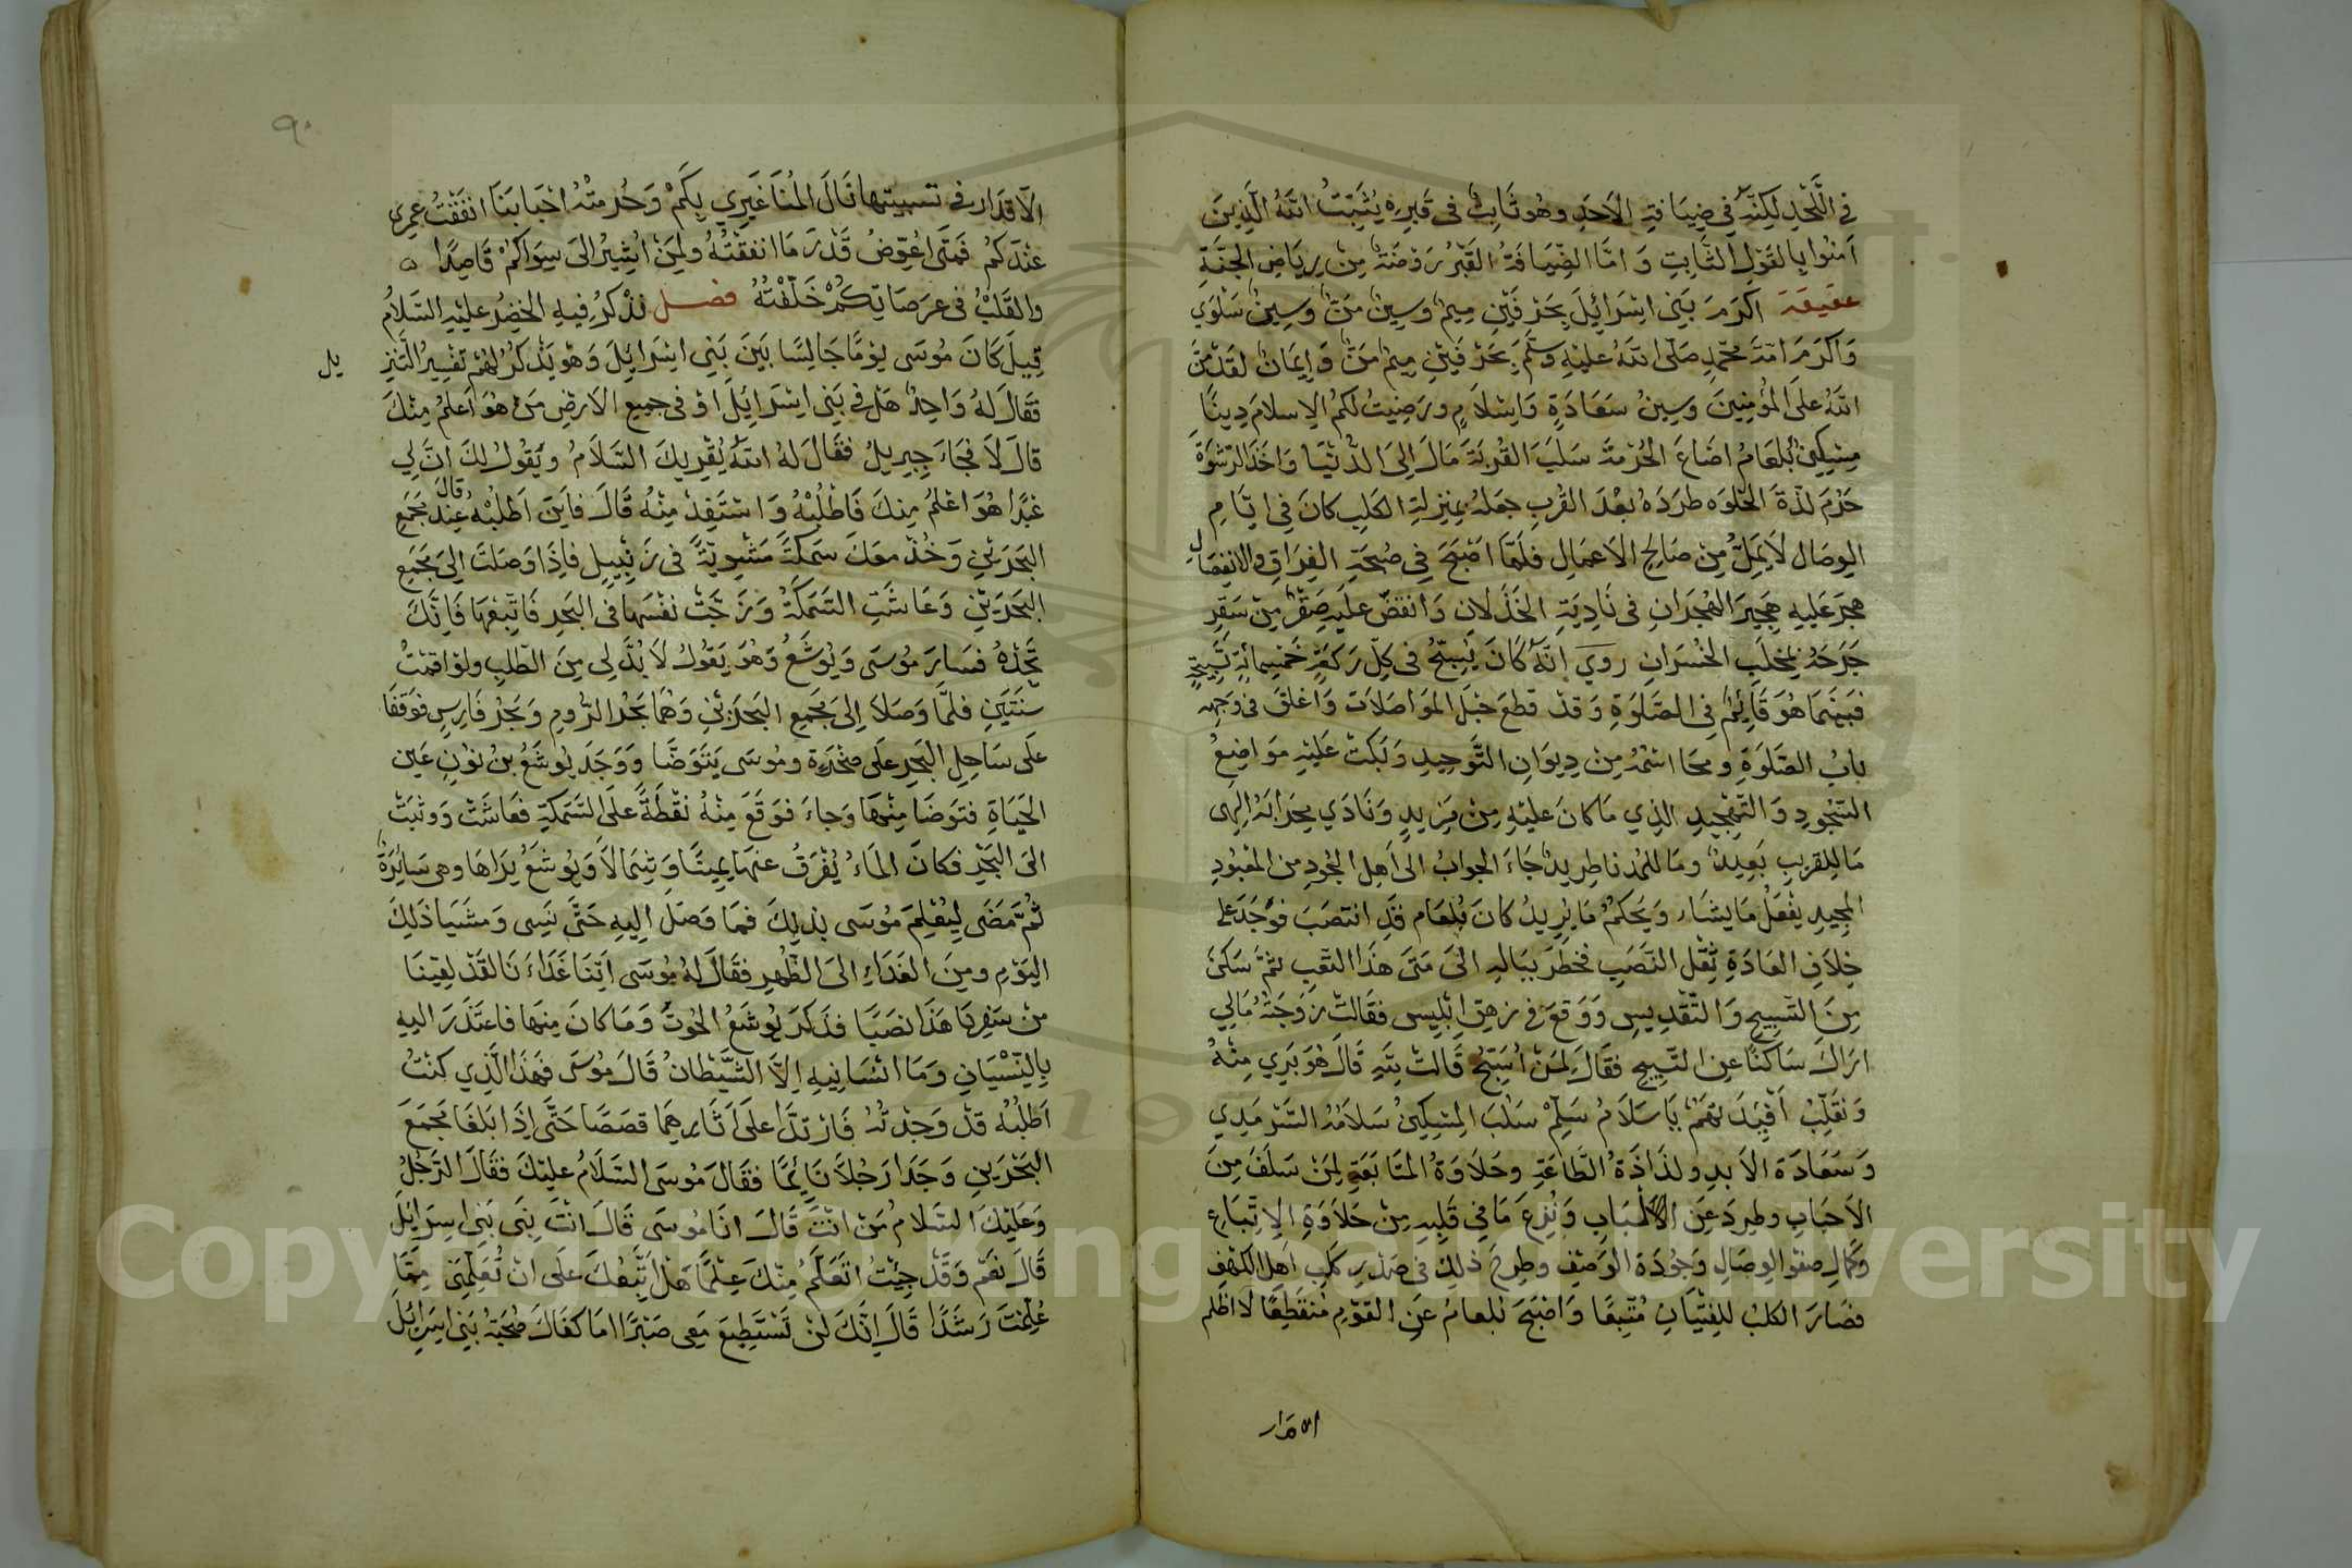 في اللحد لكنه في ضيافة الاحد وهو ثابت في قبره يثبت الله الذين
امنوا بالقول الثابت واما الضيافة القبر روضة من رياض الجنة
عقيقة اكرم بني اسرائيل بحرفين ميم وسين من وسين سلوي
واكرم امة محمد صلى الله عليه وسلم بحرفين ميم من وايمان لقد من
الله على المؤمنين وسين سعادة واسلام ورضيت لكم الاسلام دينا
مسكين بلعام اضاع الحرمة سلب القربة مال الى الدنيا واخذ الرشوة
حرم لذة الخلوه طرده بعد القرب جعله بمنزلة الكلب كان في ايام
الوصال لا يمل من صالح الاعمال فلما اصبح في صبحة الفراق والانفصال
هجر عليه هجير الهجران في نادية الخذلان وانقض عليه صقر من سقر
جرحه بمخلب الخسران روي انه كان يسبح في كل ركعة خمسمائة تسبيحة
فبينما هو قائم في الصلوة وقد قطع حبل المواصلات واغلق في وجهه
باب الصلوة ومحا اسمه من ديوان التوحيد وبكت عليه مواضع
السجود والتهجيد الذي ما كان عليه من مزيد ونادي محرابه الهى
ما للقريب بعيد وما للمدنا طريد جاء الجواب الى اهل الجود من المعبود
المجيد يفعل ما يشاء ويحكم ما يريد كان بلعام قد انتصب فوجد على
خلاف العادة ثقل النصب فخطر بباله الى متى هذا التعب ثم سكن
من التسبيح والتقديس ووقع في زهق ابليس فقالت زوجته مالي
اراك ساكنا عن التسبيح فقال لمن اسبح قالت لله قال هو بري منه
ونقلب افئدتهم يا سلام سلم سلب المسكين سلامه السرمدي
وسعادة الابد ولذاذة الطاعة وحلاوة المتابعة لمن سلف من
الاحباب وطرد عن الالباب ونزع ما في قلبه من حلاوة الاتباع
وكمال صفو الوصال وجودة الوصف وطرح ذلك في صدر كلب اهل الكهف
فصار الكلب للفتيان متبعا واصبح بلعام عن القوم منقطعا لا اظلم
الاقدار
٩٠
الاقدار في تسبيتها قال المنا غيري بكم وحرمته احبابنا انفقت عمرى
عندكم فمتى اعوض قدر ما انفقته ولمن اشير الى سواكم قاصدا ه
والقلب في عرصاتكم خلفته فصل نذكر فيه الخضر عليه السلام
قيل كان موسى يوما جالسا بين بني اسرائيل وهو يذكر لهم تفسير التنزيل
فقال له واحد هل في بني اسرائيل او في جميع الارض من هو اعلم منك
قال لا فجاء جبريل فقال له الله يقريك السلام ويقول لك ان لي
عبدا هو اعلم منك فاطلبه واستفد منه قال فاين اطلبه قال عند مجمع
البحرين وخذ معك سمكة مشوية في زنبيل فاذا وصلت الى مجمع
البحرين وعاشت السمكة وزجت نفسها في البحر فاتبعها فانك
تجده فسار موسى ويوشع وهو يقول لا بد لي من الطلب ولو اقمت
سنتين فلما وصلا الى مجمع البحرين وهما بحر الروم وبحر فارس فوقفا
على ساحل البحر على صخرة وموسى يتوضا ووجد يوشع بن نون عين
الحياة فتوضا منها وجاء فوقع منه نقطة على السمكة فعاشت ووثبت
الى البحر فكان الماء يفرق عنها يمينا وشمالا ويوشع يراها وهي سائرة
ثم مضى ليعلم موسى بذلك فما وصل اليه حتى نسى ومشيا ذلك
اليوم ومن الغداء الى الظهر فقال له موسى اتنا غداءنا لقد لقينا
من سفرنا هذا نصبا فذكر يوشع الحوت وما كان منها فاعتذر اليه
بالنسيان وما انسانيه الا الشيطان قال موسى فهذا الذي كنت
اطلبه قد وجدته فارتدا على اثارهما قصصا حتى اذا بلغا مجمع
البحرين وجدا رجلا نائما فقال موسى السلام عليك فقال الرجل
وعليك السلام من انت قال انا موسى قال انت نبي بني اسرائيل
قال نعم وقد جئت اتعلم منك علما هل اتبعك على ان تعلمني مما
علمت رشدا قال انك لن تستطيع معي صبرا اما كفاك صحبة بني اسرائيل